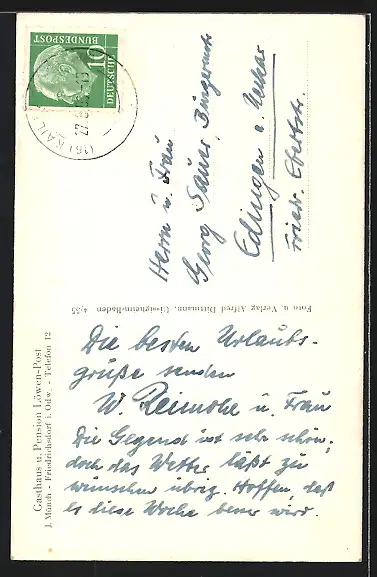 DEUTSCHE
BUNDESPOST
10
(16)
27
Herrn u. Frau
Georg Sauer, Bürgermstr.
Edingen a. Neckar
Friedr. Ebertstr.
Foto u. Verlag Alfred Dittmann, Gissigheim-Baden 4/55
Gasthaus u. Pension Löwen-Post
J. Münch - Friedrichsdorf i. Odw. - Telefon 12
Die besten Urlaubs-
grüße senden
W. u. Frau
Die Gegend ist sehr schön,
doch das Wetter läßt zu
wünschen übrig. Hoffen, daß
es diese Woche besser wird.